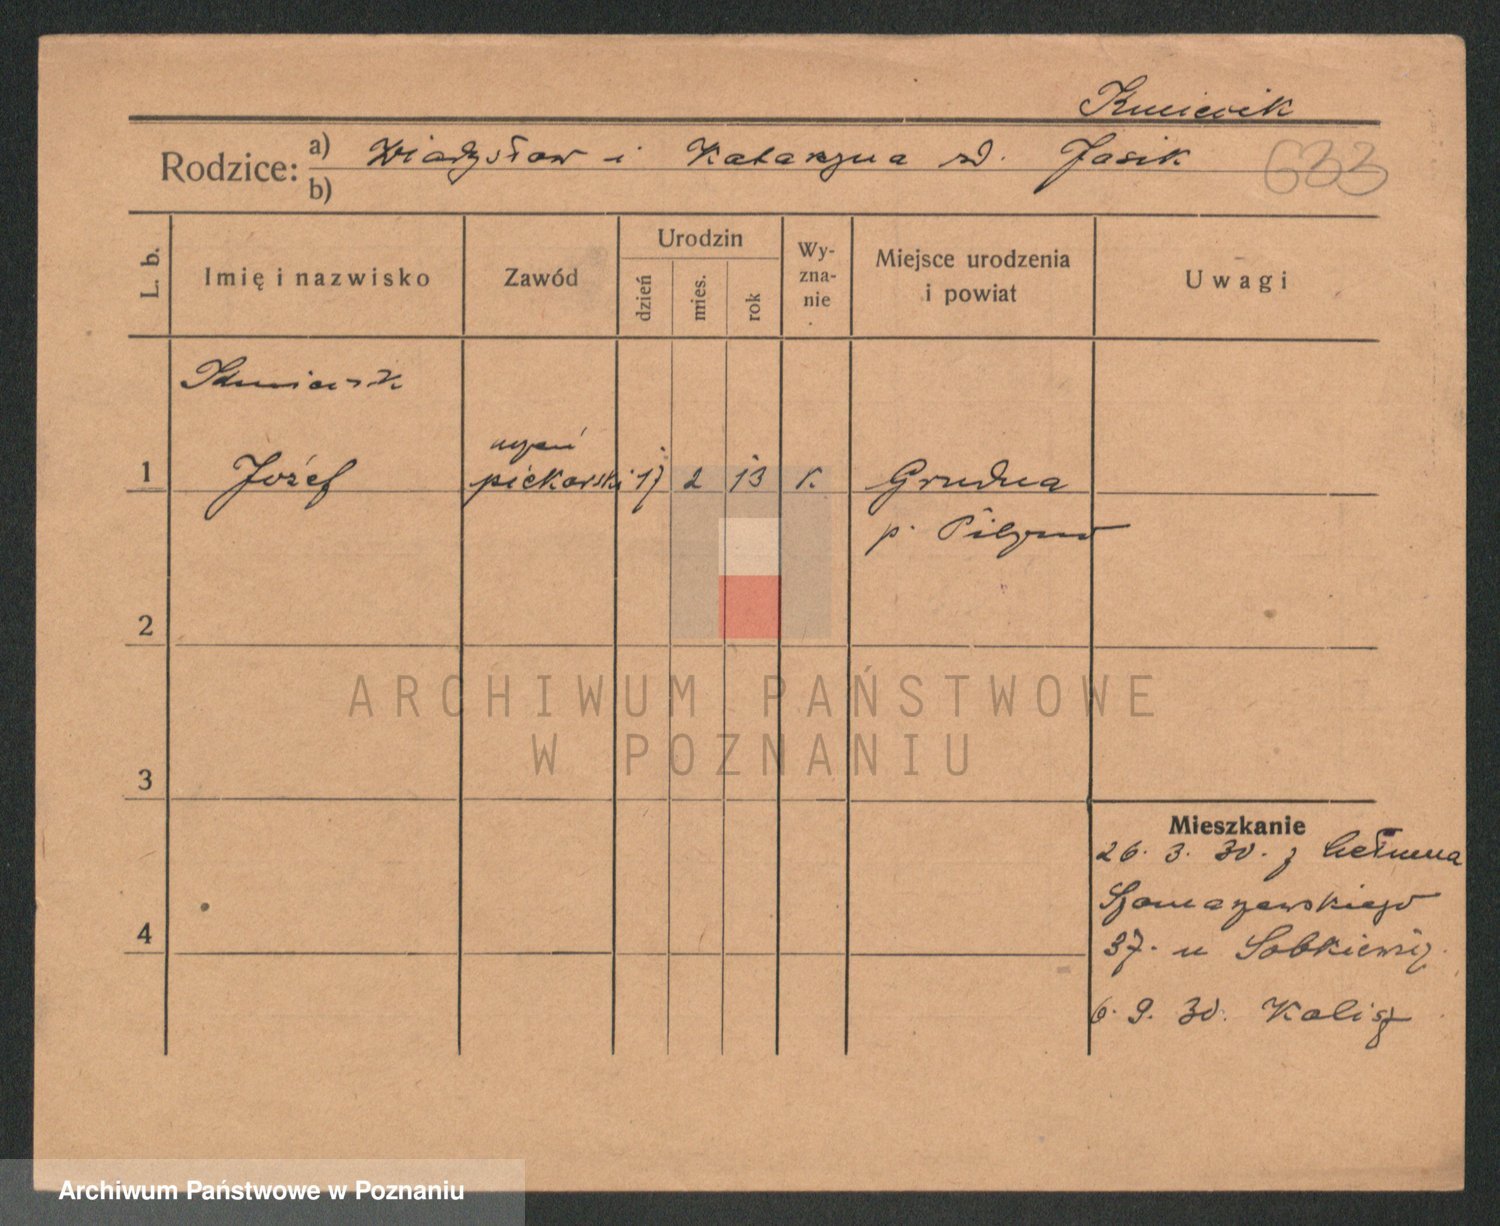 Kmiecik
Rodzice: a) Władysław i Katarzyna zd. Jasik
b)
633
L. b.
Imię i nazwisko
Zawód
Urodzin
dzień
mies.
rok
Wy-
zna-
nie
Miejsce urodzenia
i powiat
Uwagi
Kmiecik
uczeń
1 Józef piekarski 17 2 13 r. Grudna
p. Pilzno
2
ARCHIWUM PAŃSTWOWE
W POZNANIU
3
Mieszkanie
26. 3. 30. z Chełmna
Szamarzewskiego
4
37. u Sobkiewicz
6. 9. 30. Kalisz
Archiwum Państwowe w Poznaniu